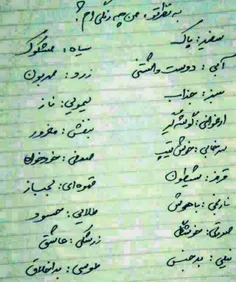 به نظر تو، من چه رنگی ام؟
سفید: پاک
سیاه: مشکوک
آبی: دوست داشتنی
زرد: مهربون
سبز: جذاب
لیمویی: ناز
ارغوانی: گوشه گیر
بنفش: مغرور
سرخابی: خوش تیپ
صدفی: خودخواه
قرمز: شیطون
قهوه ای: لجباز
نارنجی: باهوش
طلایی: حسود
صورتی: خوشگل
زرشکی: عاشق
نیلی: بدجنس
طوسی: بداخلاق